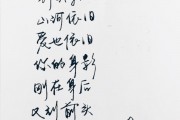 山河依旧
爱也依旧
你的身影
刚在身后
又到前头